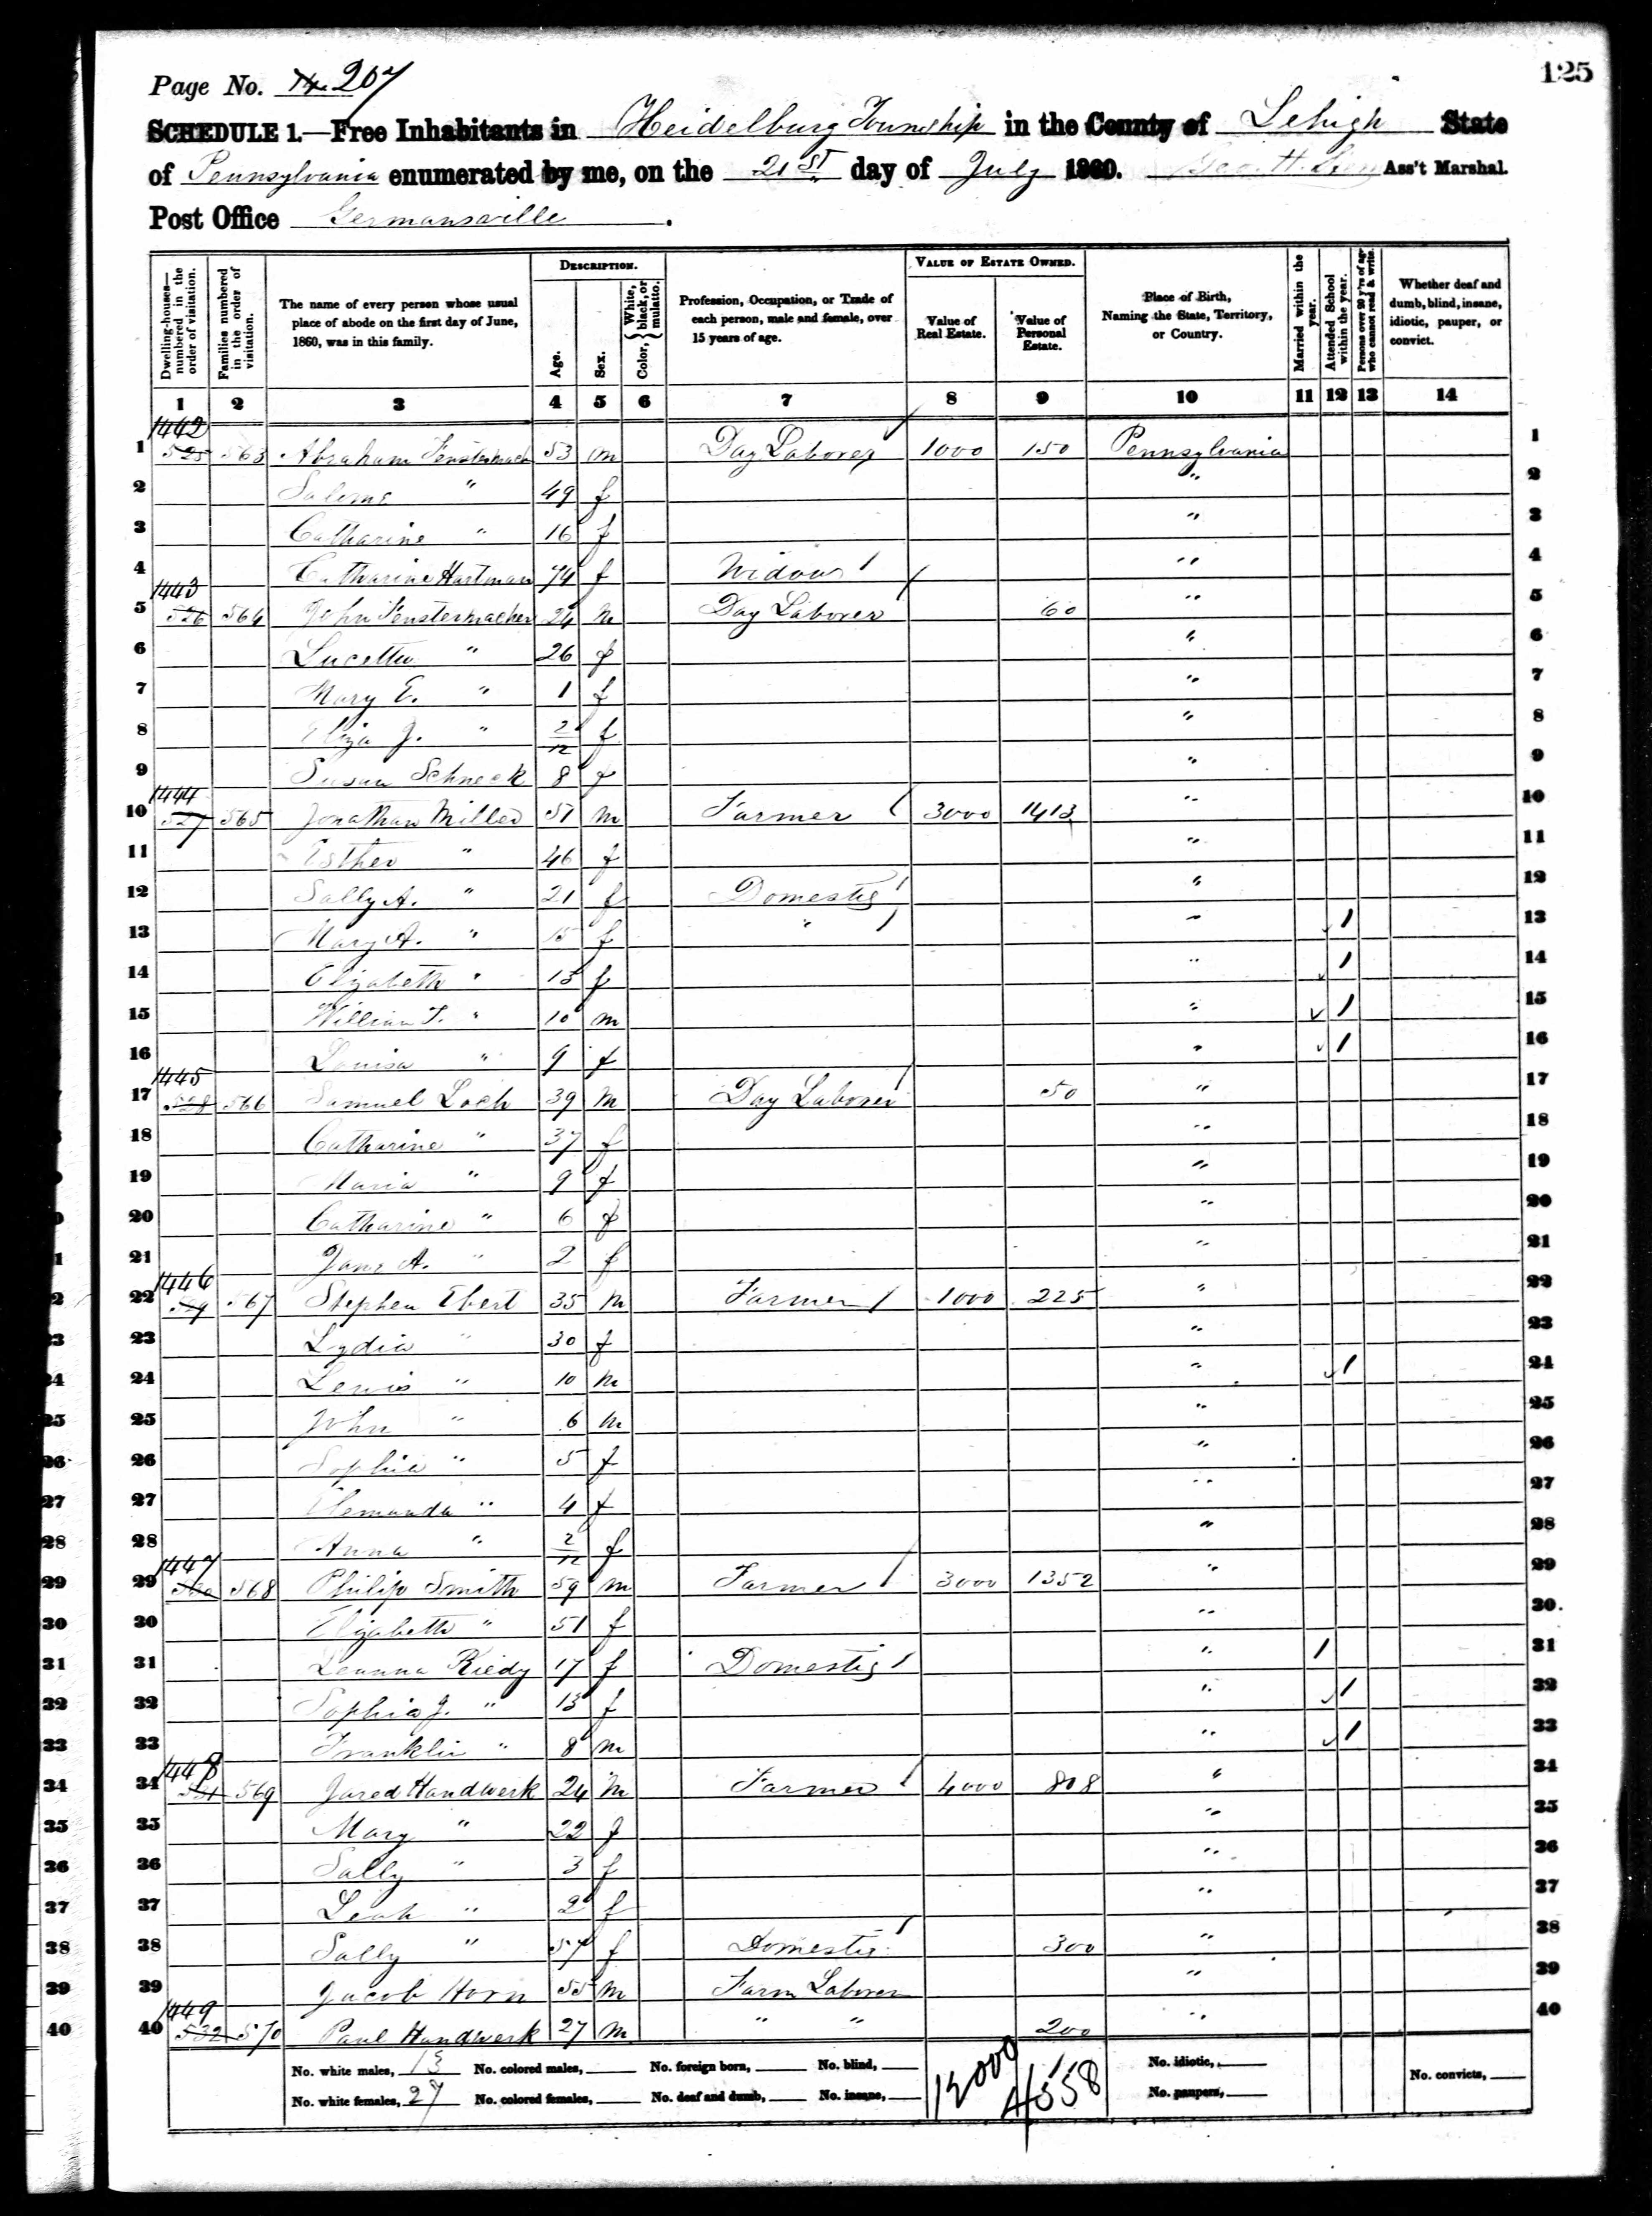 125
Page No. 14 207
SCHEDULE 1.—Free Inhabitants in Heidelburg Township in the County of Lehigh State
of Pennsylvania enumerated by me, on the 21st day of July 1860. Ass't Marshal.
Post Office Germansville.
Dwelling-houses—numbered in the order of visitation. Families numbered in the order of visitation. The name of every person whose usual place of abode on the first day of June, 1860, was in this family. DESCRIPTION. Age. Sex. Color, { White, black, or mulatto. Profession, Occupation, or Trade of each person, male and female, over 15 years of age. VALUE OF ESTATE OWNED. Value of Real Estate. Value of Personal Estate. Place of Birth, Naming the State, Territory, or Country. Married within the year. Attended School within the year. Persons over 20 y'rs of age who cannot read & write. Whether deaf and dumb, blind, insane, idiotic, pauper, or convict.
1 2 3 4 5 6 7 8 9 10 11 12 13 14
1442
1 525 563 Abraham Fenstermach 53 m Day Laborer 1000 150 Pennsylvania 1
2 " 49 f " 2
3 Catharine " 16 f " 3
4 Catharine Hartman 74 f Widow " 4
1443
5 526 564 John Fenstermacher 24 m Day Laborer 60 " 5
6 Lucetta " 26 f " 6
7 Mary E. " 1 f " 7
8 Eliza J. " 2/12 f " 8
9 Susan Schneck 8 f " 9
1444
10 527 565 Jonathan Miller 51 m Farmer 3000 1413 " 10
11 Esther " 46 f " 11
12 Sally A. " 21 f Domestic " 12
13 Mary A. " 15 f " " 1 13
14 Elizabeth " 13 f " 1 14
15 William T. " 10 m " 1 15
16 Louisa " 9 f " 1 16
1445
17 528 566 Samuel Loch 39 m Day Laborer 50 " 17
18 Catharine " 37 f " 18
19 Maria " 9 f " 19
20 Catharine " 6 f " 20
21 Jane A. " 2 f " 21
1446
22 529 567 Stephen Ebert 35 m Farmer 1000 225 " 22
23 Lydia " 30 f " 23
24 Lewis " 10 m " 1 24
25 John " 6 m " 25
26 Sophia " 5 f " 26
27 " 4 f " 27
28 Anna " 2/12 f " 28
1447
29 530 568 Philip Smith 59 m Farmer 3000 1352 " 29
30 Elizabeth " 51 f " 30
31 Leanna Riedy 17 f Domestic " 1 31
32 Sophia J. " 13 f " 1 32
33 Franklin " 8 m " 1 33
1448
34 531 569 Jared Handwerk 24 m Farmer 4000 808 " 34
35 Mary " 22 f " 35
36 Sally " 3 f " 36
37 Leah " 2 f " 37
38 Sally " 57 f Domestic 300 " 38
39 Jacob Horn 55 m Farm Laborer " 39
1449
40 532 570 Paul Handwerk 27 m " " 200 " 40
No. white males, 13 No. colored males, No. foreign born, No. blind, 12000 4558 No. idiotic, No. convicts,
No. white females, 27 No. colored females, No. deaf and dumb, No. insane, No. paupers,